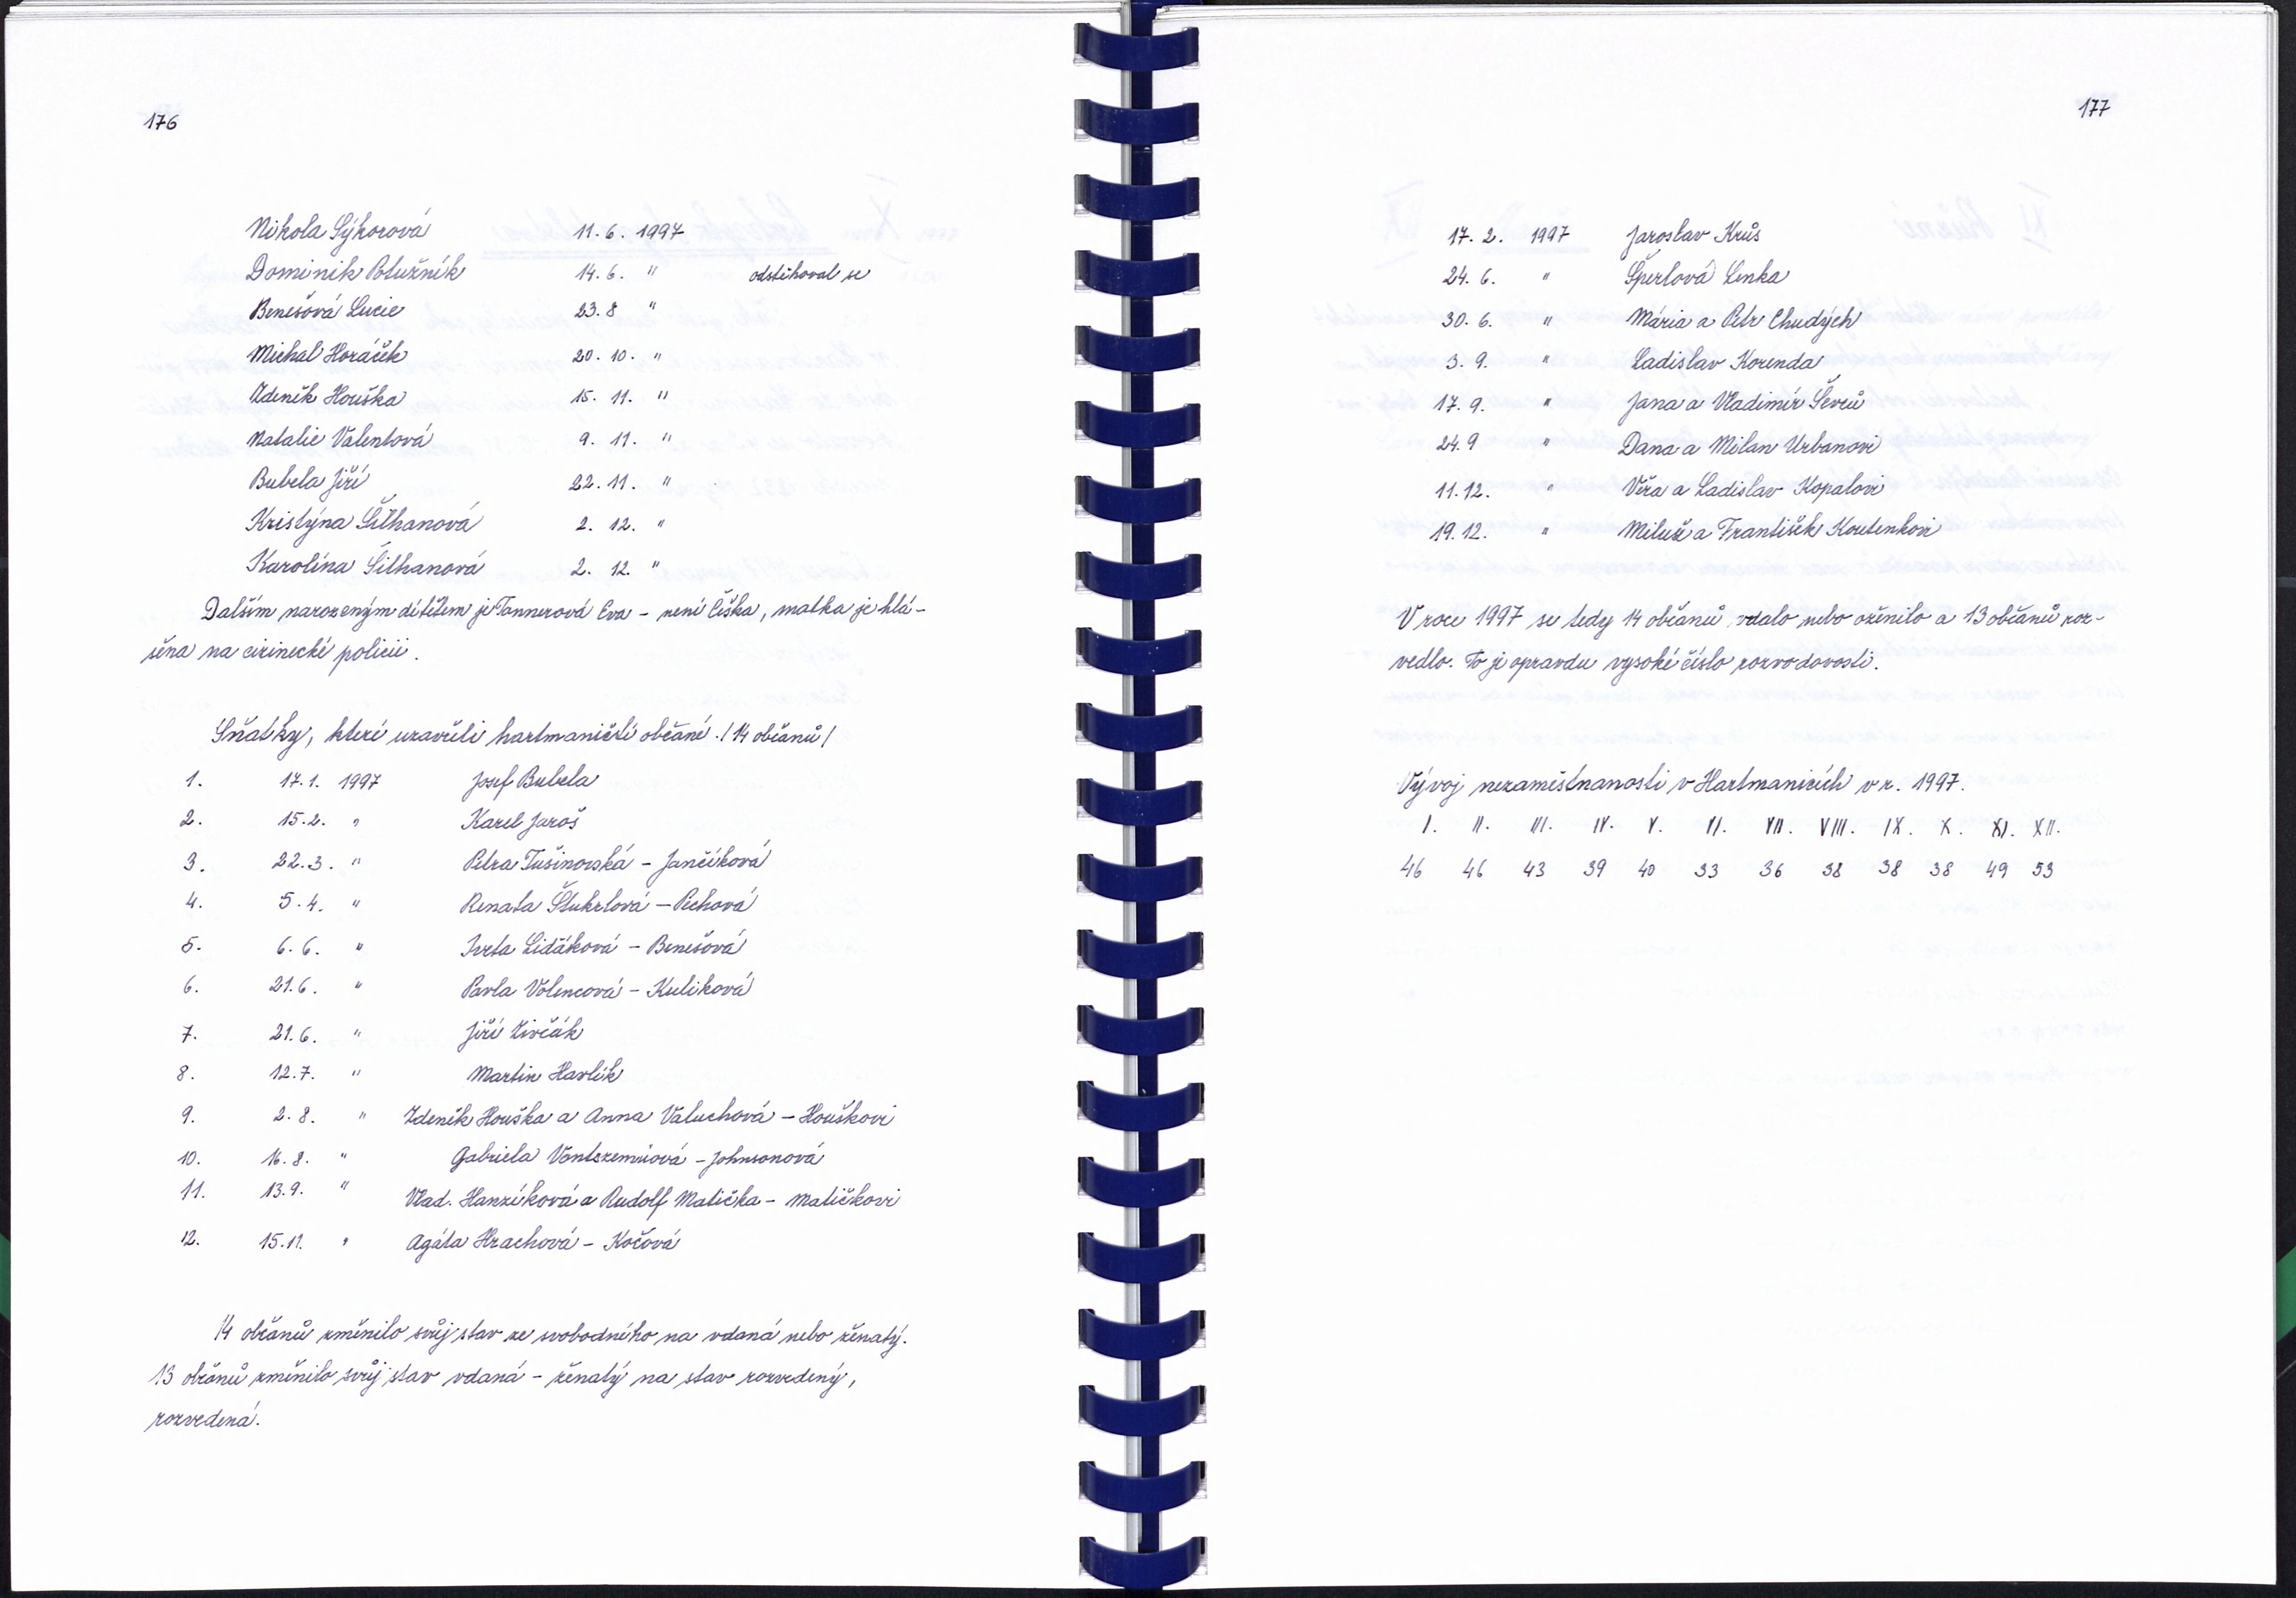 176
Nikola Sýkorová 11. 6. 1997
Dominik Potužník 14. 6. " odstěhoval se
Benešová Lucie 23. 8 "
Michal Horáček 20. 10. "
Zdeněk Houška 15. 11. "
Natalie Valentová 9. 11. "
Bubela Jiří 22. 11. "
Kristýna Šilhanová 2. 12. "
Karolína Šilhanová 2. 12. "
Dalším narozeným dítětem je Tannerová Eva – není Češka, matka je hlá-
šena na cizinecké policii.
Sňatky, které uzavřeli hartmaničtí občané. / 14 občanů /
1. 17. 1. 1997 Josef Bubela
2. 15. 2. " Karel Jaroš
3. 22. 3. " Petra Tušinovská – Jančíková
4. 5. 4. " Renata Štukrlová – Pechová
5. 6. 6. " Iveta Lidáková – Benešová
6. 21. 6. " Pavla Volencová – Kuliková
7. 21. 6. " Jiří Živčák
8. 12. 7. " Martin Havlík
9. 2. 8. " Zdeněk Houška a Anna Valuchová – Houškovi
10. 16. 8. " Gabriela – Johnsonová
11. 13. 9. " Vlad. Hanzíková a Rudolf Matička – Matičkovi
12. 15. 11. " Agáta Hrachová – Kočová
14 občanů změnilo svůj stav ze svobodného na vdaná nebo ženatý.
13 občanů změnilo svůj stav vdaná – ženatý na stav rozvedený,
rozvedená.
177
17. 2. 1997 Jaroslav Krůs
24. 6. " Šperlová Lenka
30. 6. " Mária a Petr Chudých
3. 9. " Ladislav Korenda
17. 9. " Jana a Vladimír Ševců
24. 9 " Dana a Milan Urbanovi
11. 12. " Věra a Ladislav Kopalovi
19. 12. " Miluše a František Koutenkovi
V roce 1997 se tedy 14 občanů vdalo nebo oženilo a 13 občanů roz-
vedlo. To je opravdu vysoké číslo rozvodovosti.
Vývoj nezaměstnanosti v Hartmanicích v r. 1997.
I. II. III. IV. V. VI. VII. VIII. IX. X. XI. XII.
46 46 43 39 40 33 36 38 38 38 49 53